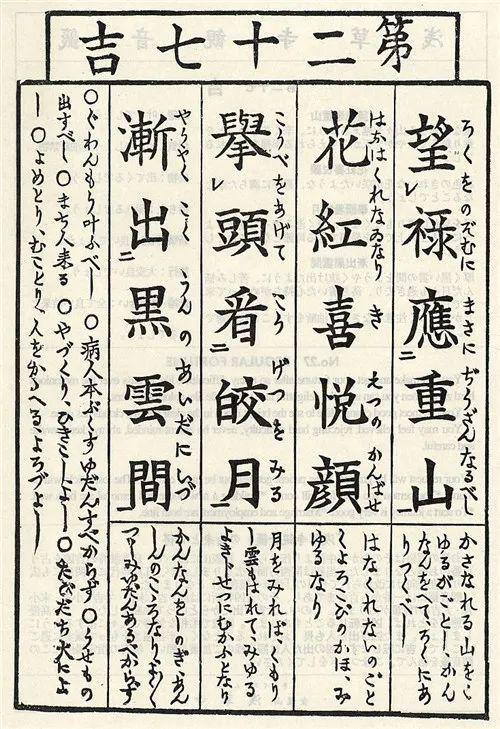 第二十七吉
ろくをのぞむに まさに ぢうざんなるべし
望レ禄應二重山一
かさなれる山をこ
ゆるがごとし、かん
なんをへてろくにあ
りつくべし
はなはくれなゐなり きえつのかんばせ
花紅喜悦顔
はなくれないのごと
くよろこびのかほ、み
ゆるなり
こうべをあげて こうげつをみる
擧レ頭看二皎月一
月をみればくもり
し雲もはれてみゆる
よきじせつにむかふとなり
やうやく こくうんのあいだにいづ
漸出二黒雲間一
かんなんをしのぎ、あん
しんのころなり、よく
つゝしみゆだんあるべからず
〇ぐわんもう叶ふべし 〇病人本ぷくすゆだんすべからず〇うせもの
出すべし 〇まち人来る 〇やづくり、ひきこしよし〇たびだち大によ
し 〇よめとり、むことり、人をかゝへるよろづよし